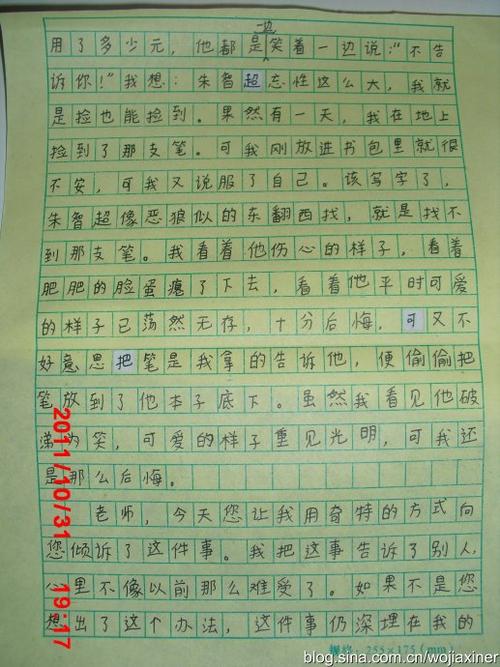 一边
用了多少元，他都是笑着一边说：“不告
诉你！”我想：朱智超忘性这么大，我就
是捡也能捡到。果然有一天，我在地上
捡到了那支笔。可我刚放进书包里就很
不安，可我又说服了自己。该写字了，
朱智超像恶狼似的东翻西找，就是找不
到那支笔。我看着他伤心的样子，看着
肥肥的脸蛋瘪了下去，看着他平时可爱
的样子已荡然无存，十分后悔，可又不
好意思把笔是我拿的告诉他，便偷偷把
笔放到了他本子底下。虽然我看见他破
涕为笑，可爱的样子重见光明，可我还
是那么后悔。
老师，今天您让我用奇特的方式向
您倾诉了这件事。我把这事告诉了别人，
心里不像以前那么难受了。如果不是您
想出了这个办法，这件事仍深埋在我的
规格：255×175（mm）
2011/10/31 19:17
blog.sina.com.cn/wojiaxiner